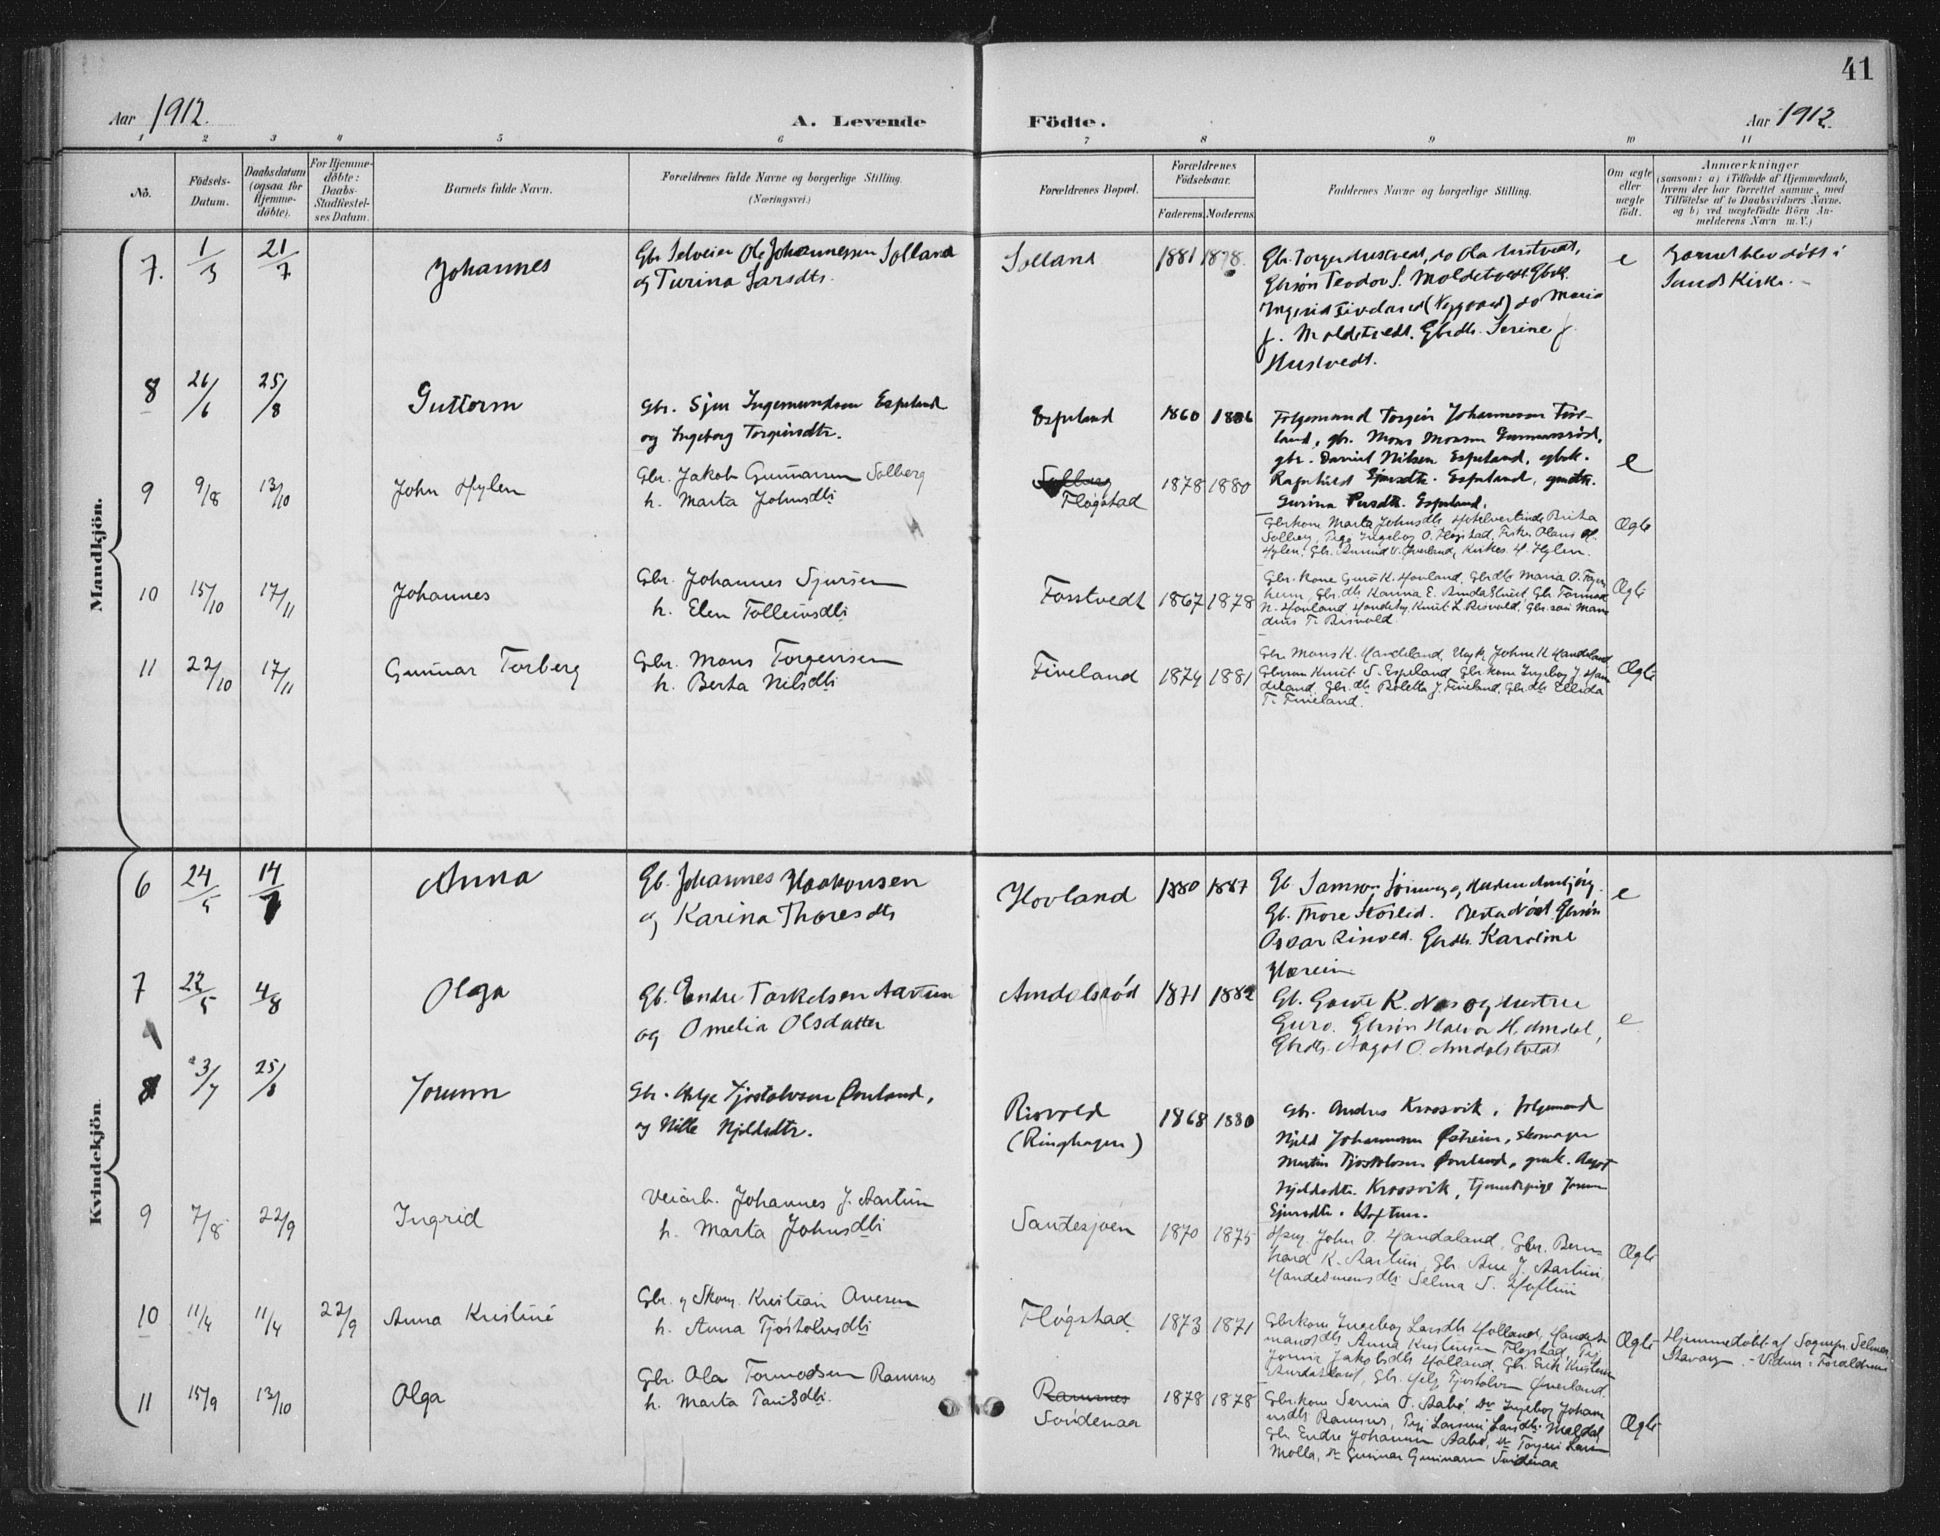 41
Aar 1912.
A. Levende
Födte.
Aar 1912.
1 2 3 4 5 6 7 8 9 10 11
No.
Födsels-
Datum.
Daabsdatum
(ogsaa for
Hjemme-
döbte).
For Hjemme-
döbte:
Daabs-
Stadfæstel-
ses Datum.
Barnets fulde Navn.
Forældrenes fulde Navne og borgerlige Stilling.
(Næringsvei.)
Forældrenes Bopæl.
Forældrenes
Födselsaar.
Faderens. Moderens.
Faddernes Navne og borgerlige Stilling.
Om ægte
eller
uægte
födt.
Anmærkninger
(saasom: a) i Tilfælde af Hjemmedaab,
hvem der har forrettet samme, med
Tilföielse af to Daabsvidners Navne.
og b) ved uægtefödte Börn An-
melderens Navn m. V.)
Mandkjön.
7. 1/3 21/7 Johannes
Gbr. Selveier Ole Johannessen Solland
og Turina Larsdtr.
Solland 1881 1878
Gbr. Torger Hustvedt, do Ola Hustvedt,
Gbrsøn Teodor S. Moldetvedt Gbrk.
Ingerid Fiveland (Nygaard) do Maria
J. Moldetvedt. Gbrdtr. Serine J.
Hustvedt.
e
Barnet blev døbt i
Sands Kirke.
8 26/6 25/8 Guttorm
Gbr. Sjur Ingemundsen Espeland
og Ingeborg Torgeirsdtr.
Espeland 1860 1886
Folgemand Torgeir Johannessen Five-
land, gbr. Mons Monsen Gunnarsrød,
gbr. Daniel Nilsen Espeland, gbrk.
Ragnhild Sjursdtr. Espeland, gmdtr.
Gurina Persdtr. Espeland.
e
9 9/8 13/10 John Hylen
Gbr. Jakob Gunnarsen Solberg
h. Marta Johnsdtr
Solberg
Fløgstad 1878 1880
Gbrkone Marta Johnsdtr Hotelvertinde Brita
Solberg, Pige Ingeborg O. Fløgstad, Fisker Olaus H.
Hylen, Gbr. Amund V. Øverland, Kirkes. H. Hylen.
Ægte
10 15/10 17/11 Johannes
Gbr. Johannes Sjursen
h. Elen Tolleivsdtr
Fosstvedt 1867 1878
Gbr. kone Guro K. Hovland, Gbrdtr Maria O.
heim, Gbr. dtr Karina E. Amdalstvedt, Gbr. Tormod
N. Hovland, Handelsb. Knut L. Risvold, Gbr. søn Man-
dius T. Risvold.
Ægte
11 22/10 17/11 Gunnar Torberg
Gbr. Mons Torgeirsen
h. Berta Nilsdtr
Fiveland 1874 1881
Gbr Mons K. Handeland, Ungk. Johne K. Handeland
Gbrsøn Knut S. Espeland, Gbr kone Ingeborg J. Han-
deland, Gbr. dtr Boletta J. Fiveland, Gbr. dtr Ellida
T. Fiveland.
Ægte
Kvindekjön.
6 24/5 14/7 Anna
Gb. Johannes Haakonsen
og Karina Thoresdtr
Hovland 1880 1887
Gb. Samson, Hustru Anbjørg
Gb. Thore Høilid. Berta Nøst Gbrsøn
Oskar Risvold. Gbrdtr. Karoline
Hærein
e
7 22/5 4/8 Olga
Gb. Endre Torkelsen Aartun
og Omelia Olsdatter
Amdalsrød 1871 1882
Gb. Gaute K. Næs og Hustru
Guro. Gbrsøn Halvor H. Amdal,
Gbrdtr. Aagot O. Amdalstvedt
e
8 3/7 25/8 Jorunn
Gbr. Helge Tjostolvsen Øverland,
og Nille Njeldsdtr.
Risvold
(Ringhagen) 1868 1880
Gbr. Andres Kroosvik, folgemand
Njeld Johannessen Østrein, skomager
Martin Tjostolvsen Øverland, gmk. Aagot
Njeldsdtr. Kroosvik, tjenestepige Jorun
Sjursdtr. Hoftun.
9 7/8 22/9 Ingrid
Veiarb. Johannes J. Aartun
h. Marta Johnsdtr
Sandesjøen 1870 1875
John O. Handeland, Gbr. Bern-
hard K. Aartun, Gbr. Ane J. Aartun,
Handelsmansdtr Selma S. Hoftun
Ægte
10 11/4 11/4 22/9 Anna Kristine
Gbr. og Skom. Kristian Anesen
h. Anna Tjostolvsdtr
Fløgstad 1873 1871
Gbrkone Ingeborg Larsdtr Holland, Handels-
mandsdtr Anna Kristensen Fløgstad, Pige
Jonna Jakobsdtr Holland, Gbr. Erik Knutsen
Aurdalsland, Gbr. Helge Tjostolvsen Øverland.
Ægte
Hjemmedøbt af Sognepr. Selmer,
Stavang. Vidner: Forældrene
11 15/9 13/10 Olga
Gbr. Ola Tormodsen Ramnes
h. Marta Larsdtr.
Ramnes
Søndenaa 1878 1878
Gbr.kone Serina O. Aabø, Do Ingeborg Johan-
nesdtr Ramnes, Pige Larsine Larsdtr Moldal,
Gbr. Endre Johannsen Aabø, do Torgeir Larsen
Molla, do Gunnar Gunnarsen Søndenaa
Ægte